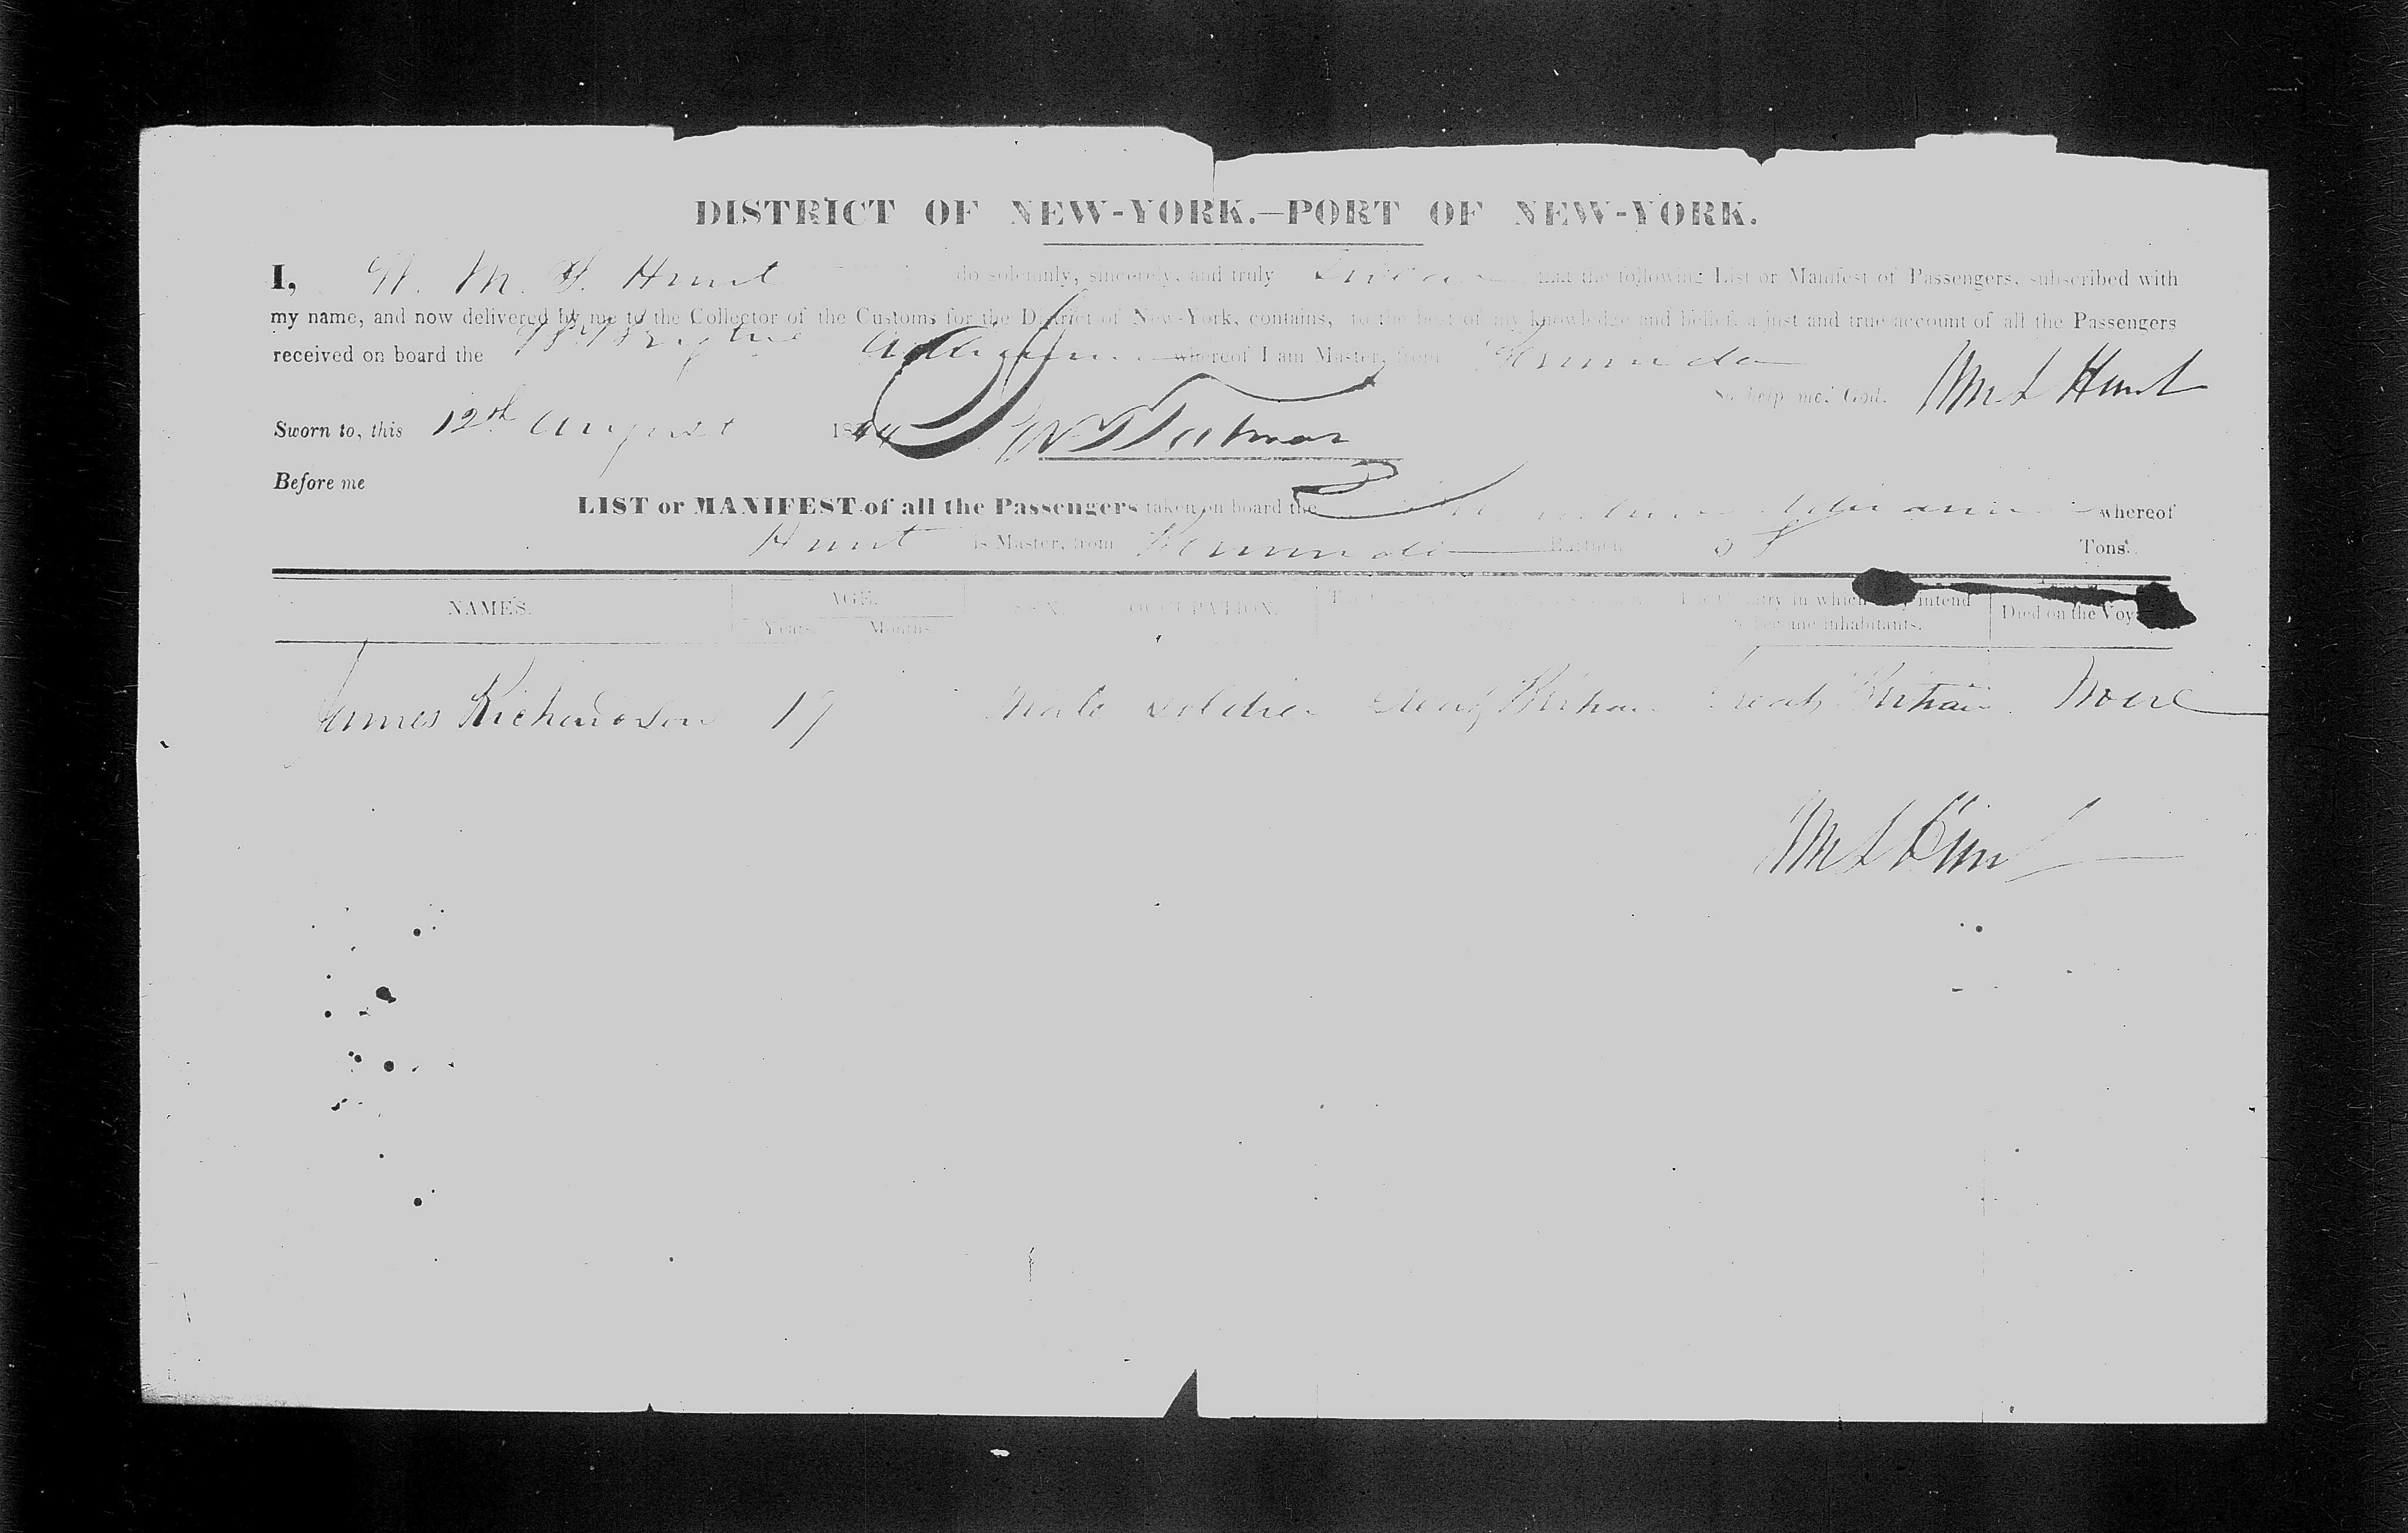 DISTRICT OF NEW-YORK.—PORT OF NEW-YORK.
I, W. M. S. Hunt do solemnly, sincerely, and truly swear that the following List or Manifest of Passengers, subscribed with
my name, and now delivered by me to the Collector of the Customs for the District of New-York, contains, to the best of my knowledge and belief, a just and true account of all the Passengers
received on board the whereof I am Master, from Bermuda
So help me God. Wm S Hunt
Sworn to, this 12th August 1844
Before me
LIST or MANIFEST of all the Passengers taken on board the whereof
Hunt is Master, from Bermuda Burthen Tons.
NAMES. AGE. SEX. OCCUPATION. The Country in which they intend Died on the Voy
Years. Months. to become inhabitants.
James Richardson 19 Male Soldier Great Britain Great Britain None
Wm S Hunt